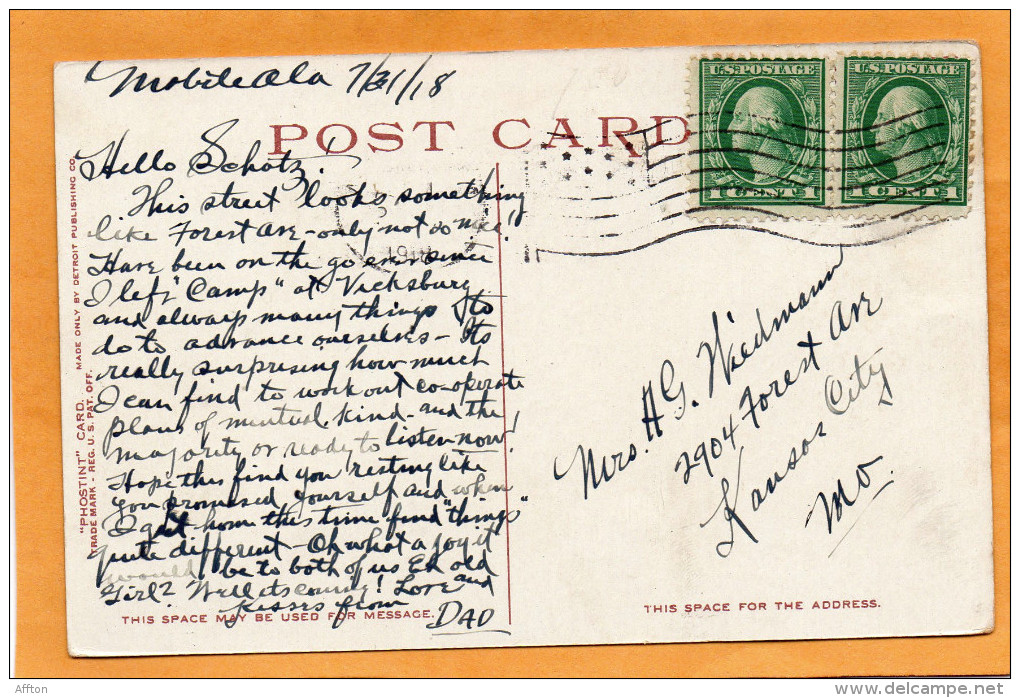 Mobile Ala 7/31/18
POST CARD
U.S. POSTAGE
1 CENT 1
U.S. POSTAGE
1 CENT 1
Hello Schotz!
This street looks something
like Forest Ave - only not so nice!
Have been on the go ever since
I left "Camp" at Vicksburg
and always many things to
do to advance ourselves - Its
really surprising how much
I can find to work out co-operate
plans of mutual kind - and the
majority or ready to listen now!
Hope this find you resting like
you promised yourself and when
I get home this time find "things"
quite different - Oh what a joy it
would be to both of us Eh old
Girl? Well its coming! Love and
Kisses from
DAD
Mrs. H G. Wiedmann
2904 Forest Ave
Kansas City
Mo.
"PHOSTINT" CARD. MADE ONLY BY DETROIT PUBLISHING CO.
TRADE MARK - REG. U.S. PAT. OFF.
THIS SPACE MAY BE USED FOR MESSAGE.
THIS SPACE FOR THE ADDRESS.
Affton
www.delcampe.net